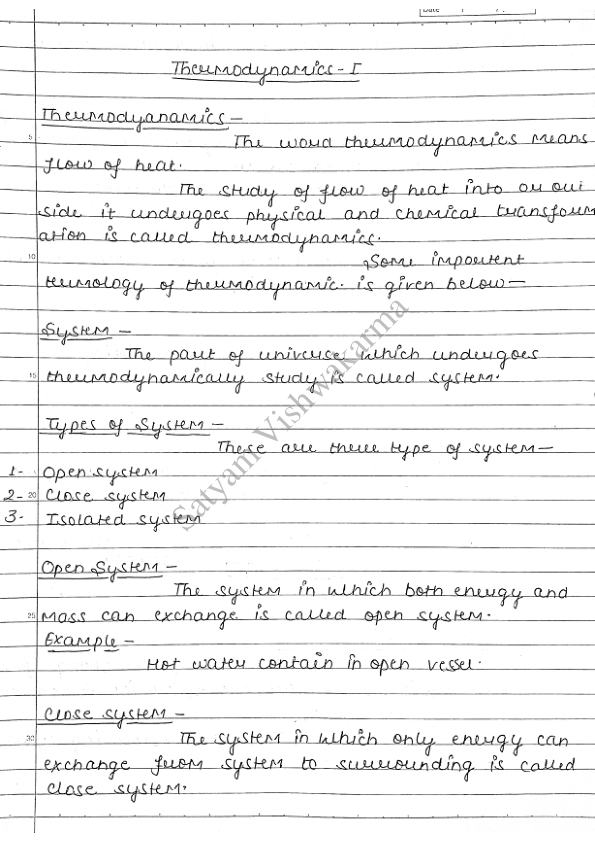 Date
Thermodynamics - I
Thermodyanamics -
5
The word thermodynamics means
flow of heat.
The study of flow of heat into or out
side it undergoes physical and chemical transform
ation is called thermodynamics.
10
Some importent
termology of thermodynamic. is given below -
System -
The part of universe which undergoes
15 thermodynamically study is called system.
Types of System -
These are three type of system -
1- Open system
2- 20 Close system
3- Isolated system
Open System -
The system in which both energy and
25 mass can exchange is called open system.
Example -
Hot water contain in open vessel.
Close system -
30 The system in which only energy can
exchange from system to surrounding is called
close system.
Satyam Vishwakarma